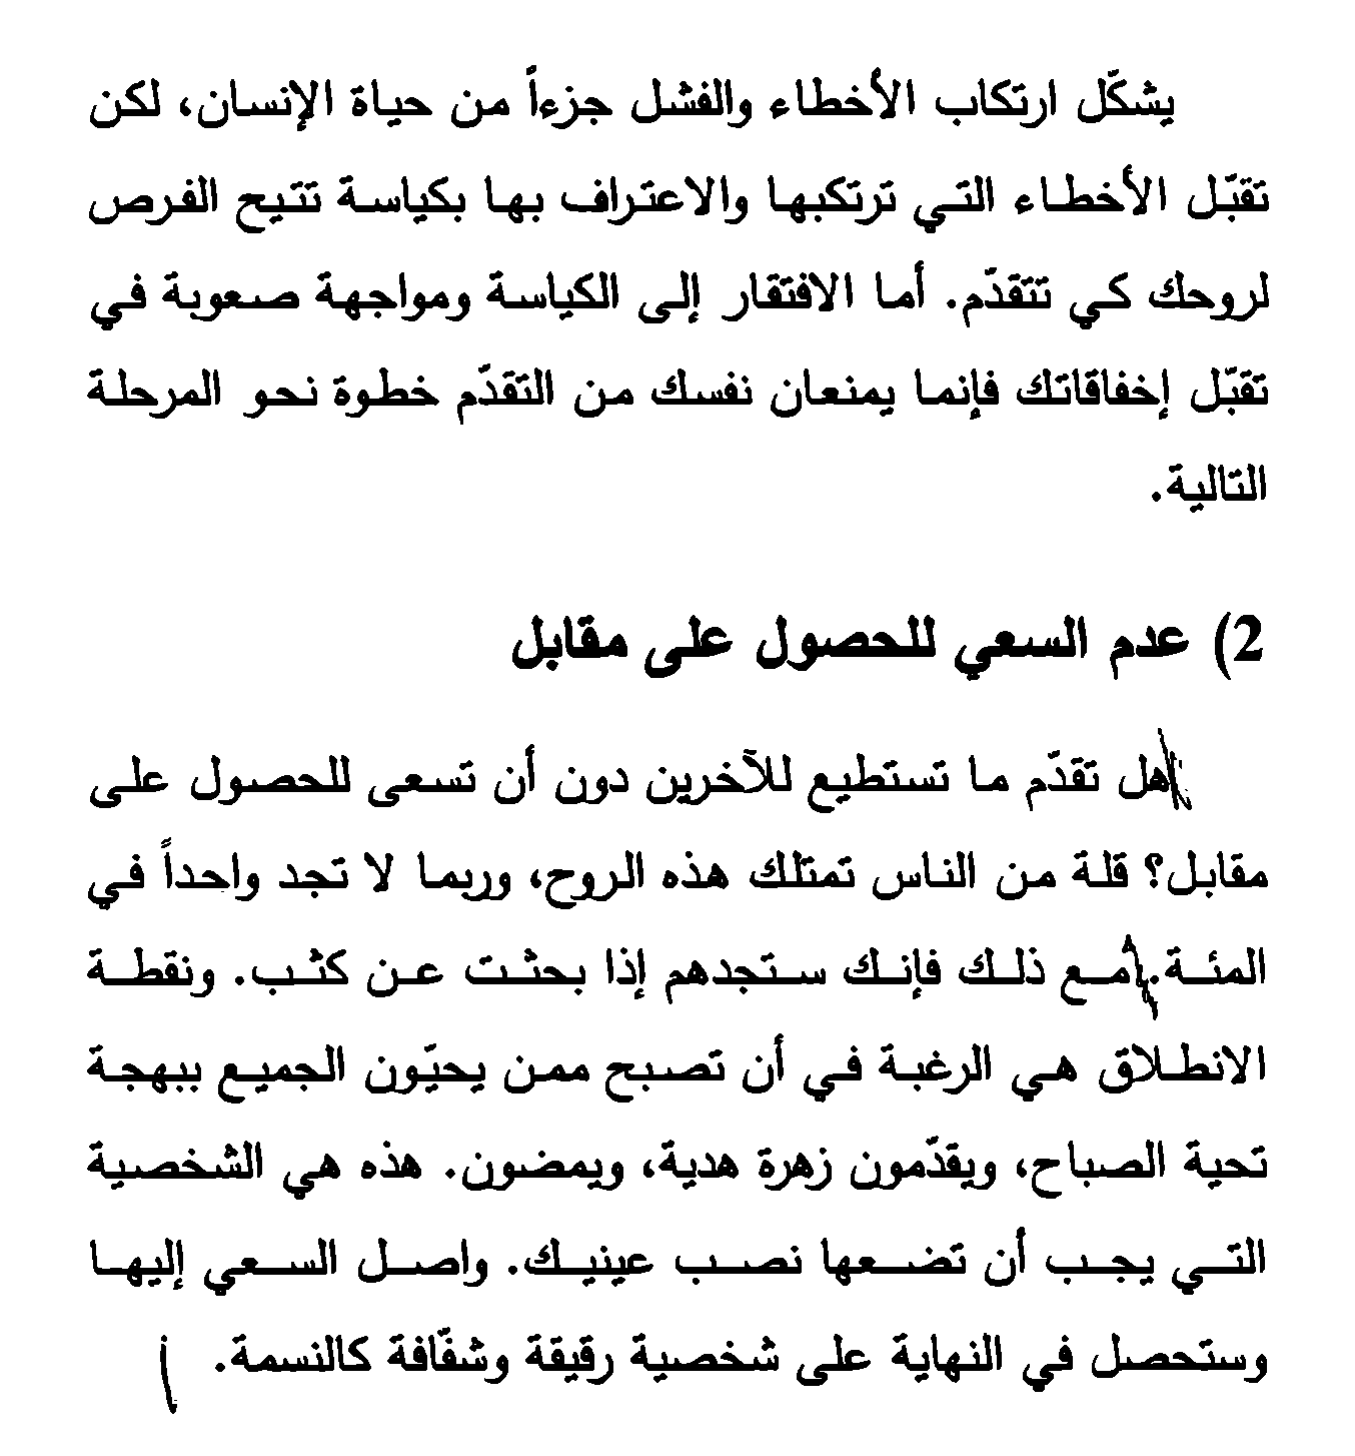 يشكّل ارتكاب الأخطاء والفشل جزءاً من حياة الإنسان، لكن
تقبّل الأخطاء التي ترتكبها والاعتراف بها بكياسة تتيح الفرص
لروحك كي تتقدّم. أما الافتقار إلى الكياسة ومواجهة صعوبة في
تقبّل إخفاقاتك فإنما يمنعان نفسك من التقدّم خطوة نحو المرحلة
التالية.
2) عدم السعي للحصول على مقابل
هل تقدّم ما تستطيع للآخرين دون أن تسعى للحصول على
مقابل؟ قلة من الناس تمتلك هذه الروح، وربما لا تجد واحداً في
المئة. مع ذلك فإنك ستجدهم إذا بحثت عن كثب. ونقطة
الانطلاق هي الرغبة في أن تصبح ممن يحيّون الجميع ببهجة
تحية الصباح، ويقدّمون زهرة هدية، ويمضون. هذه هي الشخصية
التي يجب أن تضعها نصب عينيك. واصل السعي إليها
وستحصل في النهاية على شخصية رقيقة وشفّافة كالنسمة.